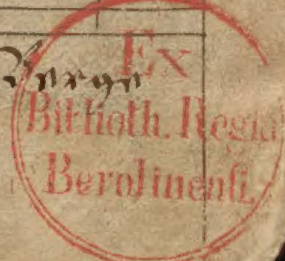 Ex
Berge
Biblioth. Regia
Berolinensi.